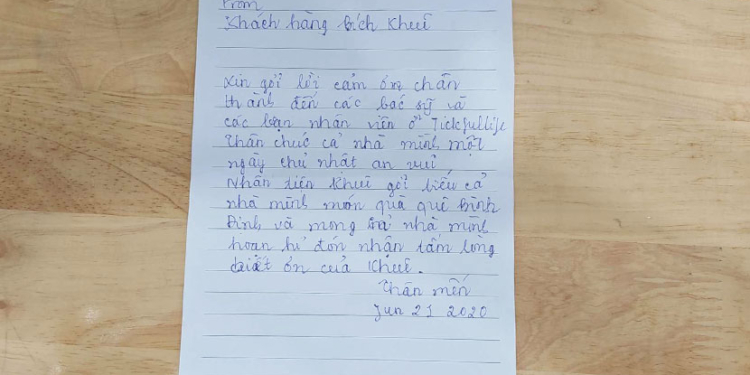 From
Khách hàng Bích Khuê
Xin gởi lời cảm ơn chân
thành đến các bác sỹ và
các bạn nhân viên ở Jickfullife
Thân chúc cả nhà mình một
ngày chủ nhật an vui
Nhân tiện Khuê gởi biếu cả
nhà mình món quà quê Bình
Định và mong cả nhà mình
hoan hỉ đón nhận tấm lòng
biết ơn của Khuê.
Thân mến
Jun 21 2020